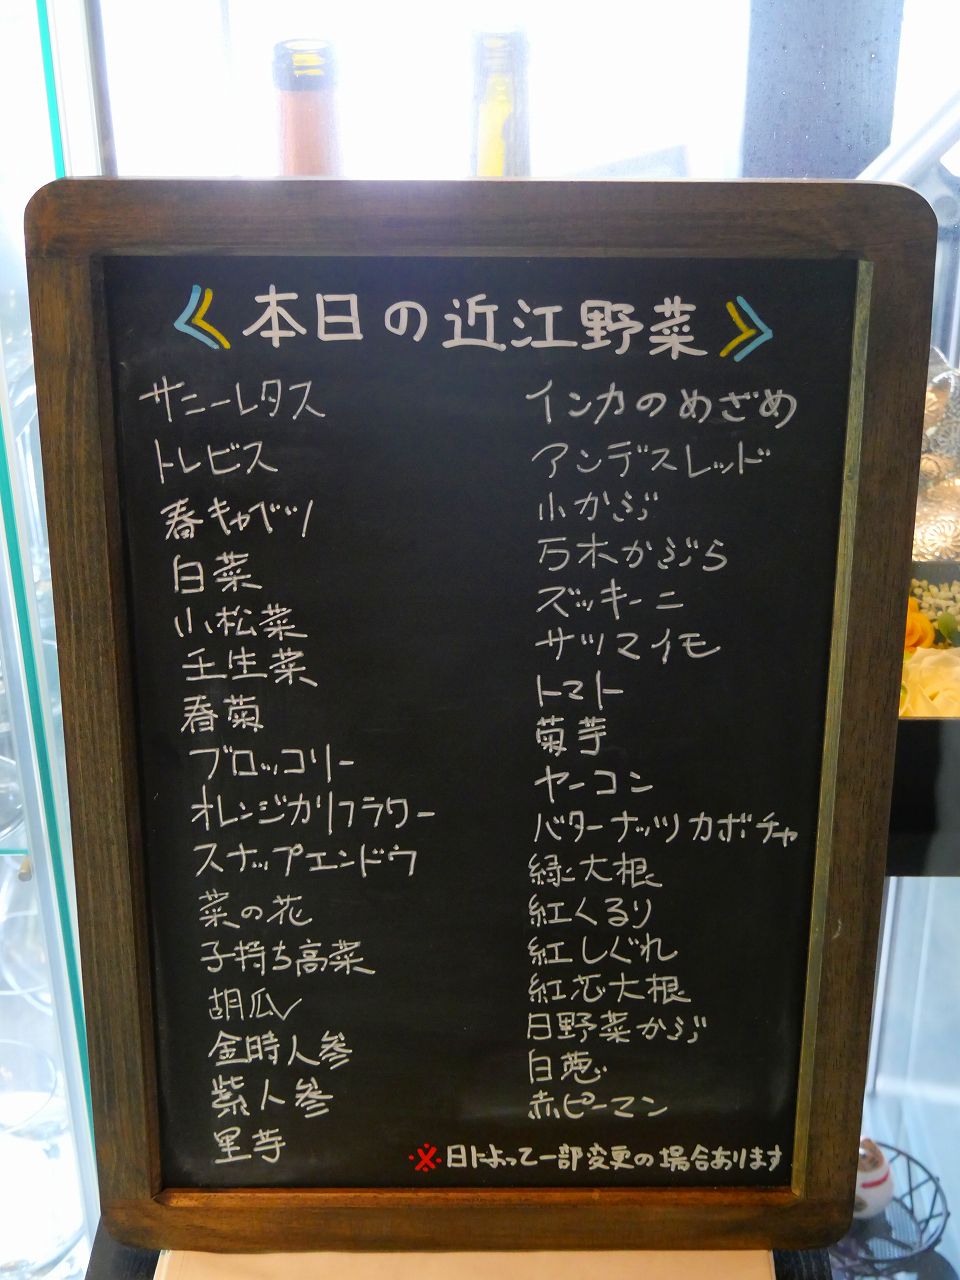 ≪本日の近江野菜≫
サニーレタス
トレビス
春キャベツ
白菜
小松菜
壬生菜
春菊
ブロッコリー
オレンジカリフラワー
スナップエンドウ
菜の花
子持ち高菜
胡瓜
金時人参
紫人参
里芋
インカのめざめ
アンデスレッド
小かぶ
万木かぶら
ズッキーニ
サツマイモ
トマト
菊芋
ヤーコン
バターナッツカボチャ
緑大根
紅くるり
紅しぐれ
紅芯大根
日野菜かぶ
白葱
赤ピーマン
※日によって一部変更の場合あります